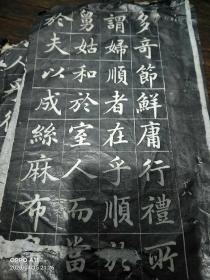 多奇節鮮庸行禮所
謂婦順者在乎順於
舅姑和於室人而當
於夫以成絲麻布